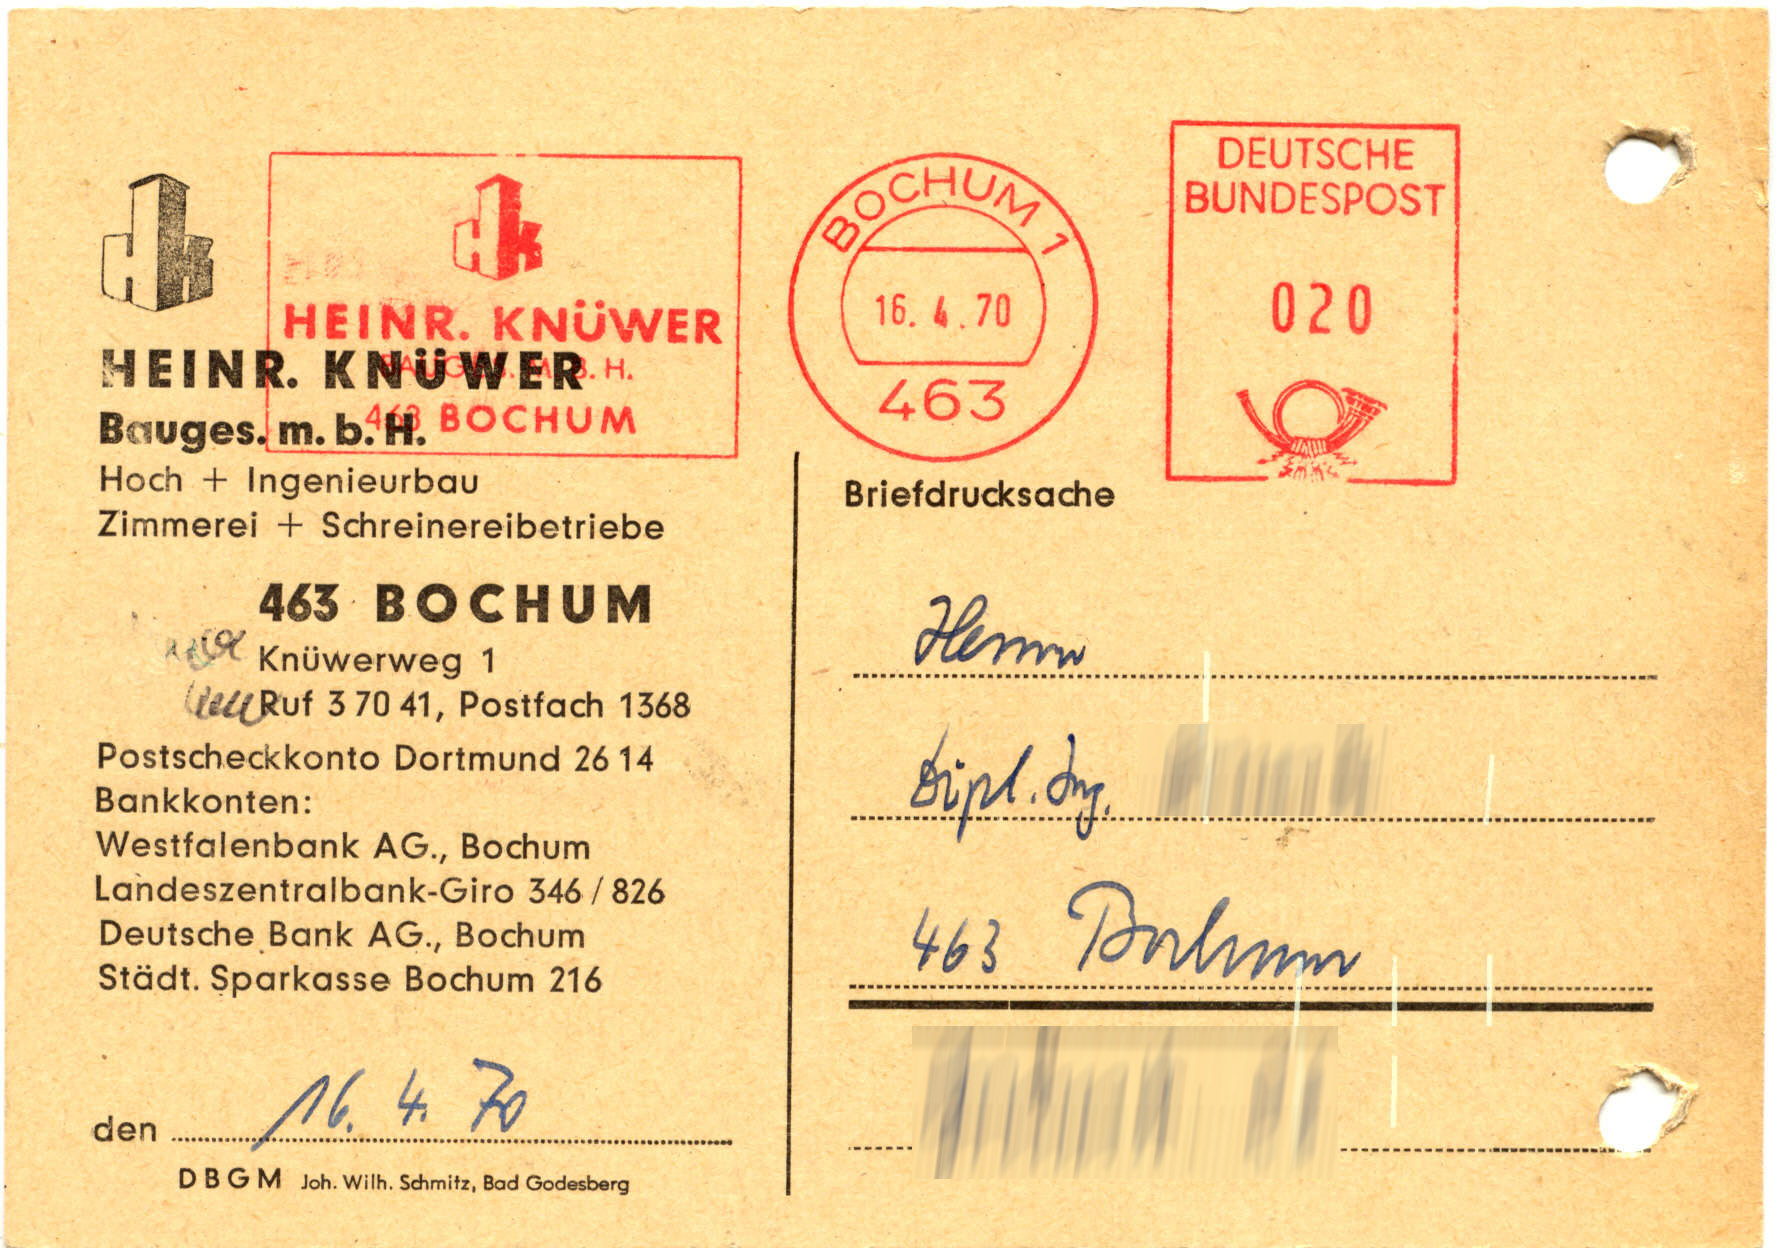 HK
HEINR. KNÜWER
Bauges. m. b. H.
Hoch + Ingenieurbau
Zimmerei + Schreinereibetriebe
463 BOCHUM
Knüwerweg 1
Ruf 3 70 41, Postfach 1368
Postscheckkonto Dortmund 26 14
Bankkonten:
Westfalenbank AG., Bochum
Landeszentralbank-Giro 346 / 826
Deutsche Bank AG., Bochum
Städt. Sparkasse Bochum 216
den 16. 4. 70
DBGM Joh. Wilh. Schmitz, Bad Godesberg
HK
HEINR. KNÜWER
BAUGES. M. B. H.
463 BOCHUM
BOCHUM 1
16. 4. 70
463
DEUTSCHE
BUNDESPOST
020
Briefdrucksache
Herrn
Dipl. Ing.
463 Bochum